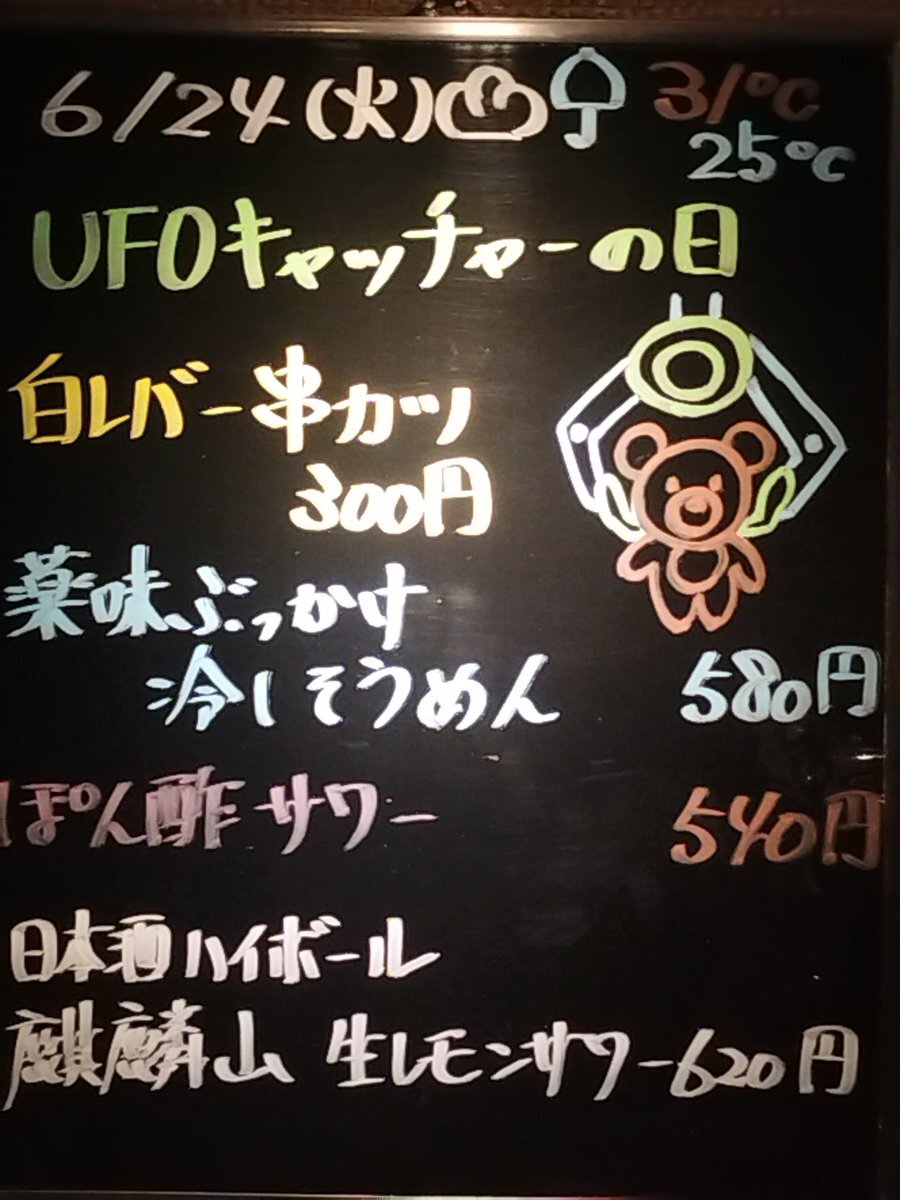 6/24(火) 31℃
25℃
UFOキャッチャーの日
白レバー串カツ
300円
薬味ぶっかけ
冷しそうめん 580円
ぽん酢サワー 540円
日本酒ハイボール
麒麟山 生レモンサワー620円